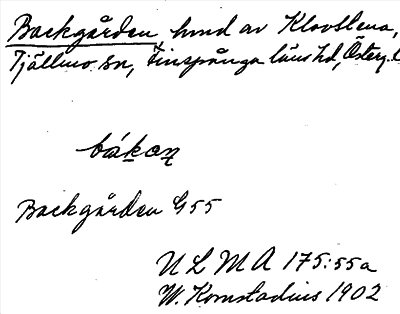 Backgården, hmd av Klovstena,
Tjällmo sn, Finspånga läns hd, Österg.
bákaꞑ
Backgården G55
ULMA 175:55a
W. Komstadius 1902